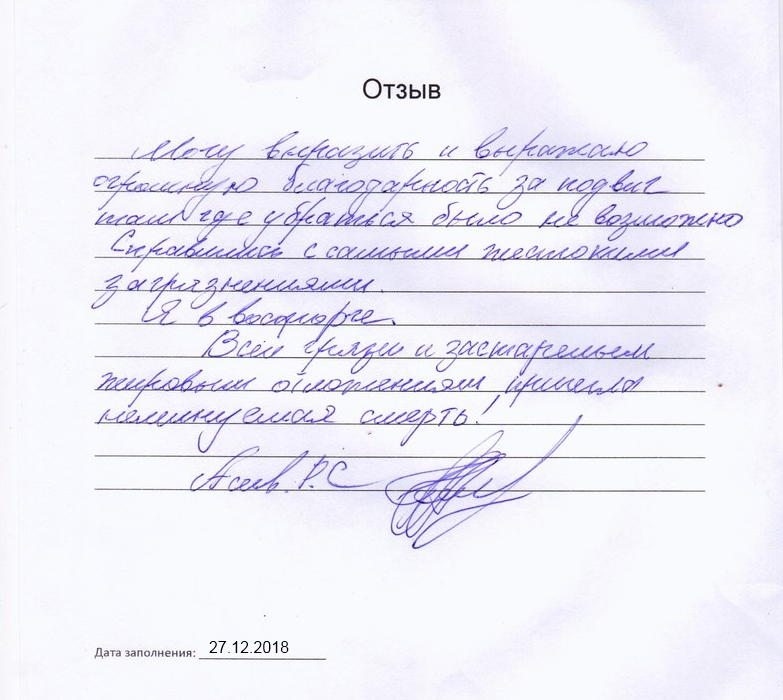 Отзыв
Могу выразить и выражаю
огромную благодарность за подвиг
там где убраться было не возможно
Справились с самыми жестокими
загрязнениями.
Я в восторге.
Всем грязи и застарелым
жировым отложениям пришла
неминуемая смерть!
Р.С
Дата заполнения: 27.12.2018